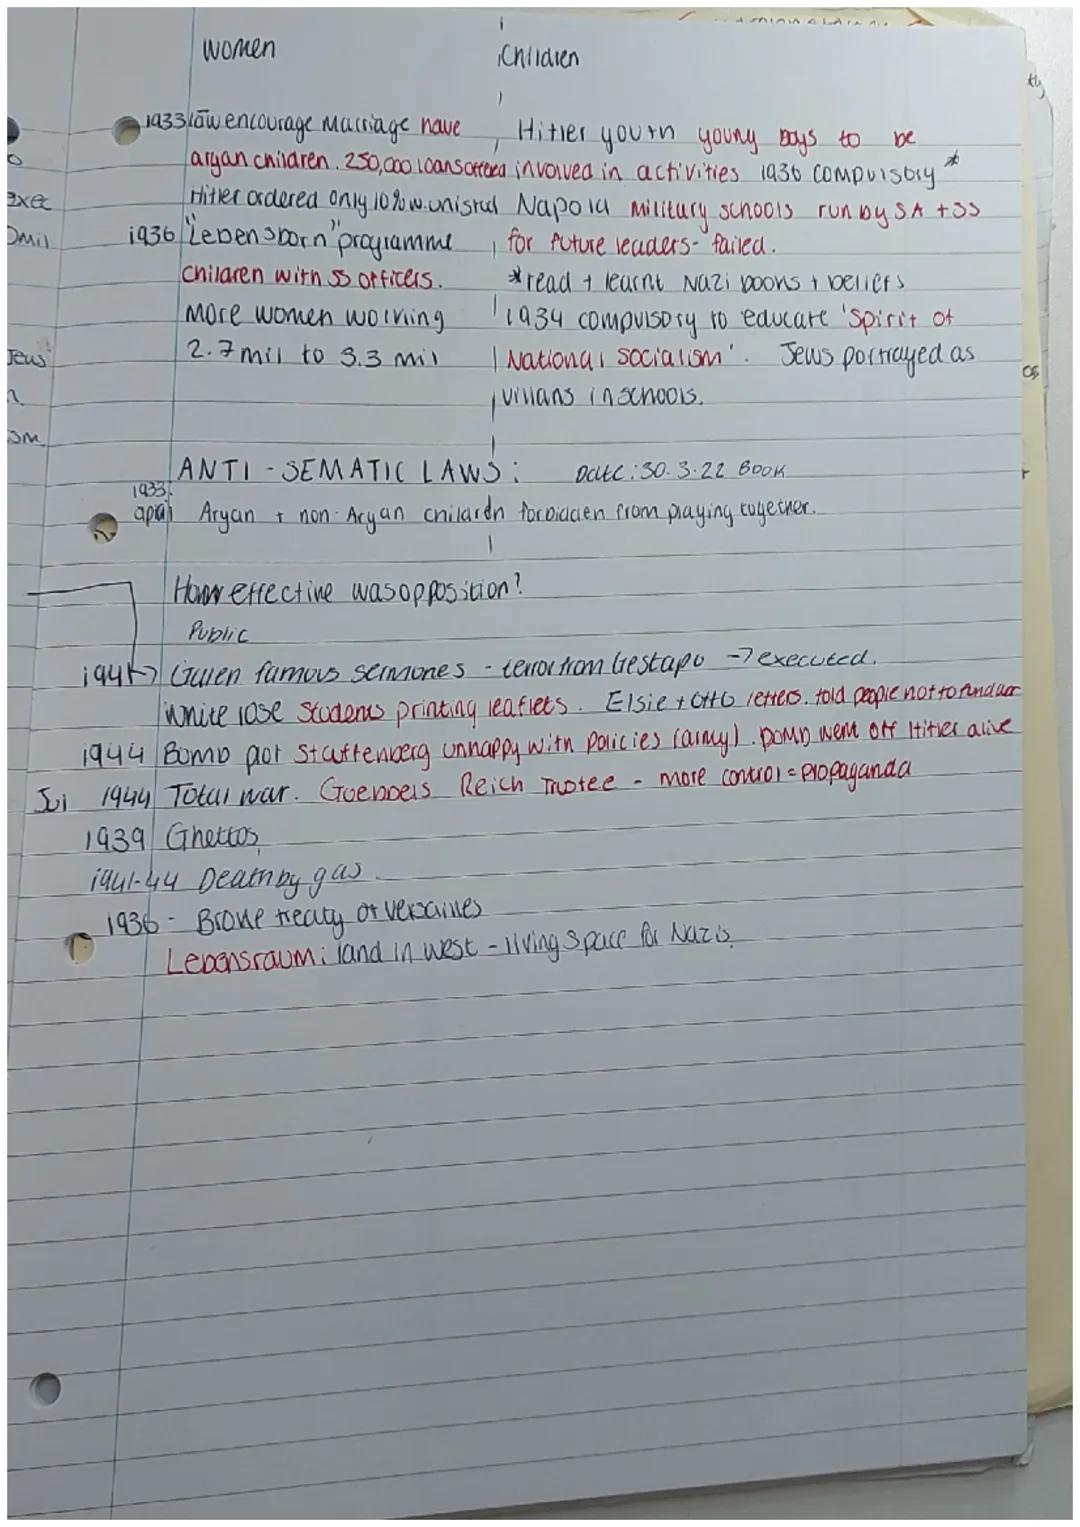 women
Children
1933 law encourage Marriage have
aryan children. 250,000 loans offered
Hitler ordered only 10% w. uni stud
1936 "Lebensborn" programme
children with SS officers.
More women working
2.7 mil to 3.3 mil
Hitler youth young boys to be
involved in activities 1936 compulsory *
Napola military schools run by SA + SS
for future leaders - failed.
* read + learnt Nazi books + beliefs
1934 compulsory to educate 'Spirit of
National socialism'. Jews portrayed as
villans in schools.
exec
Jews
ANTI - SEMATIC LAWS: Date: 30.3.22 BOOK
1933
Aryan + non-Aryan children forbidden from playing together.
How effective was opposition?
Public
1941 → Galen famous sermones - terror from Gestapo → executed.
White rose students printing leaflets. Elsie + Otto letters. told people not to fund war
1944 Bomb plot Stauffenberg unhappy with policies (army). bomb went off Hitler alive
Jul 1944 Total war. Goebbels Reich Trustee - more control = propaganda
1939 Ghettos
1941-44 Death by gas.
1936 - Broke treaty of versailles
Lebensraum: land in west - living space for Nazis.